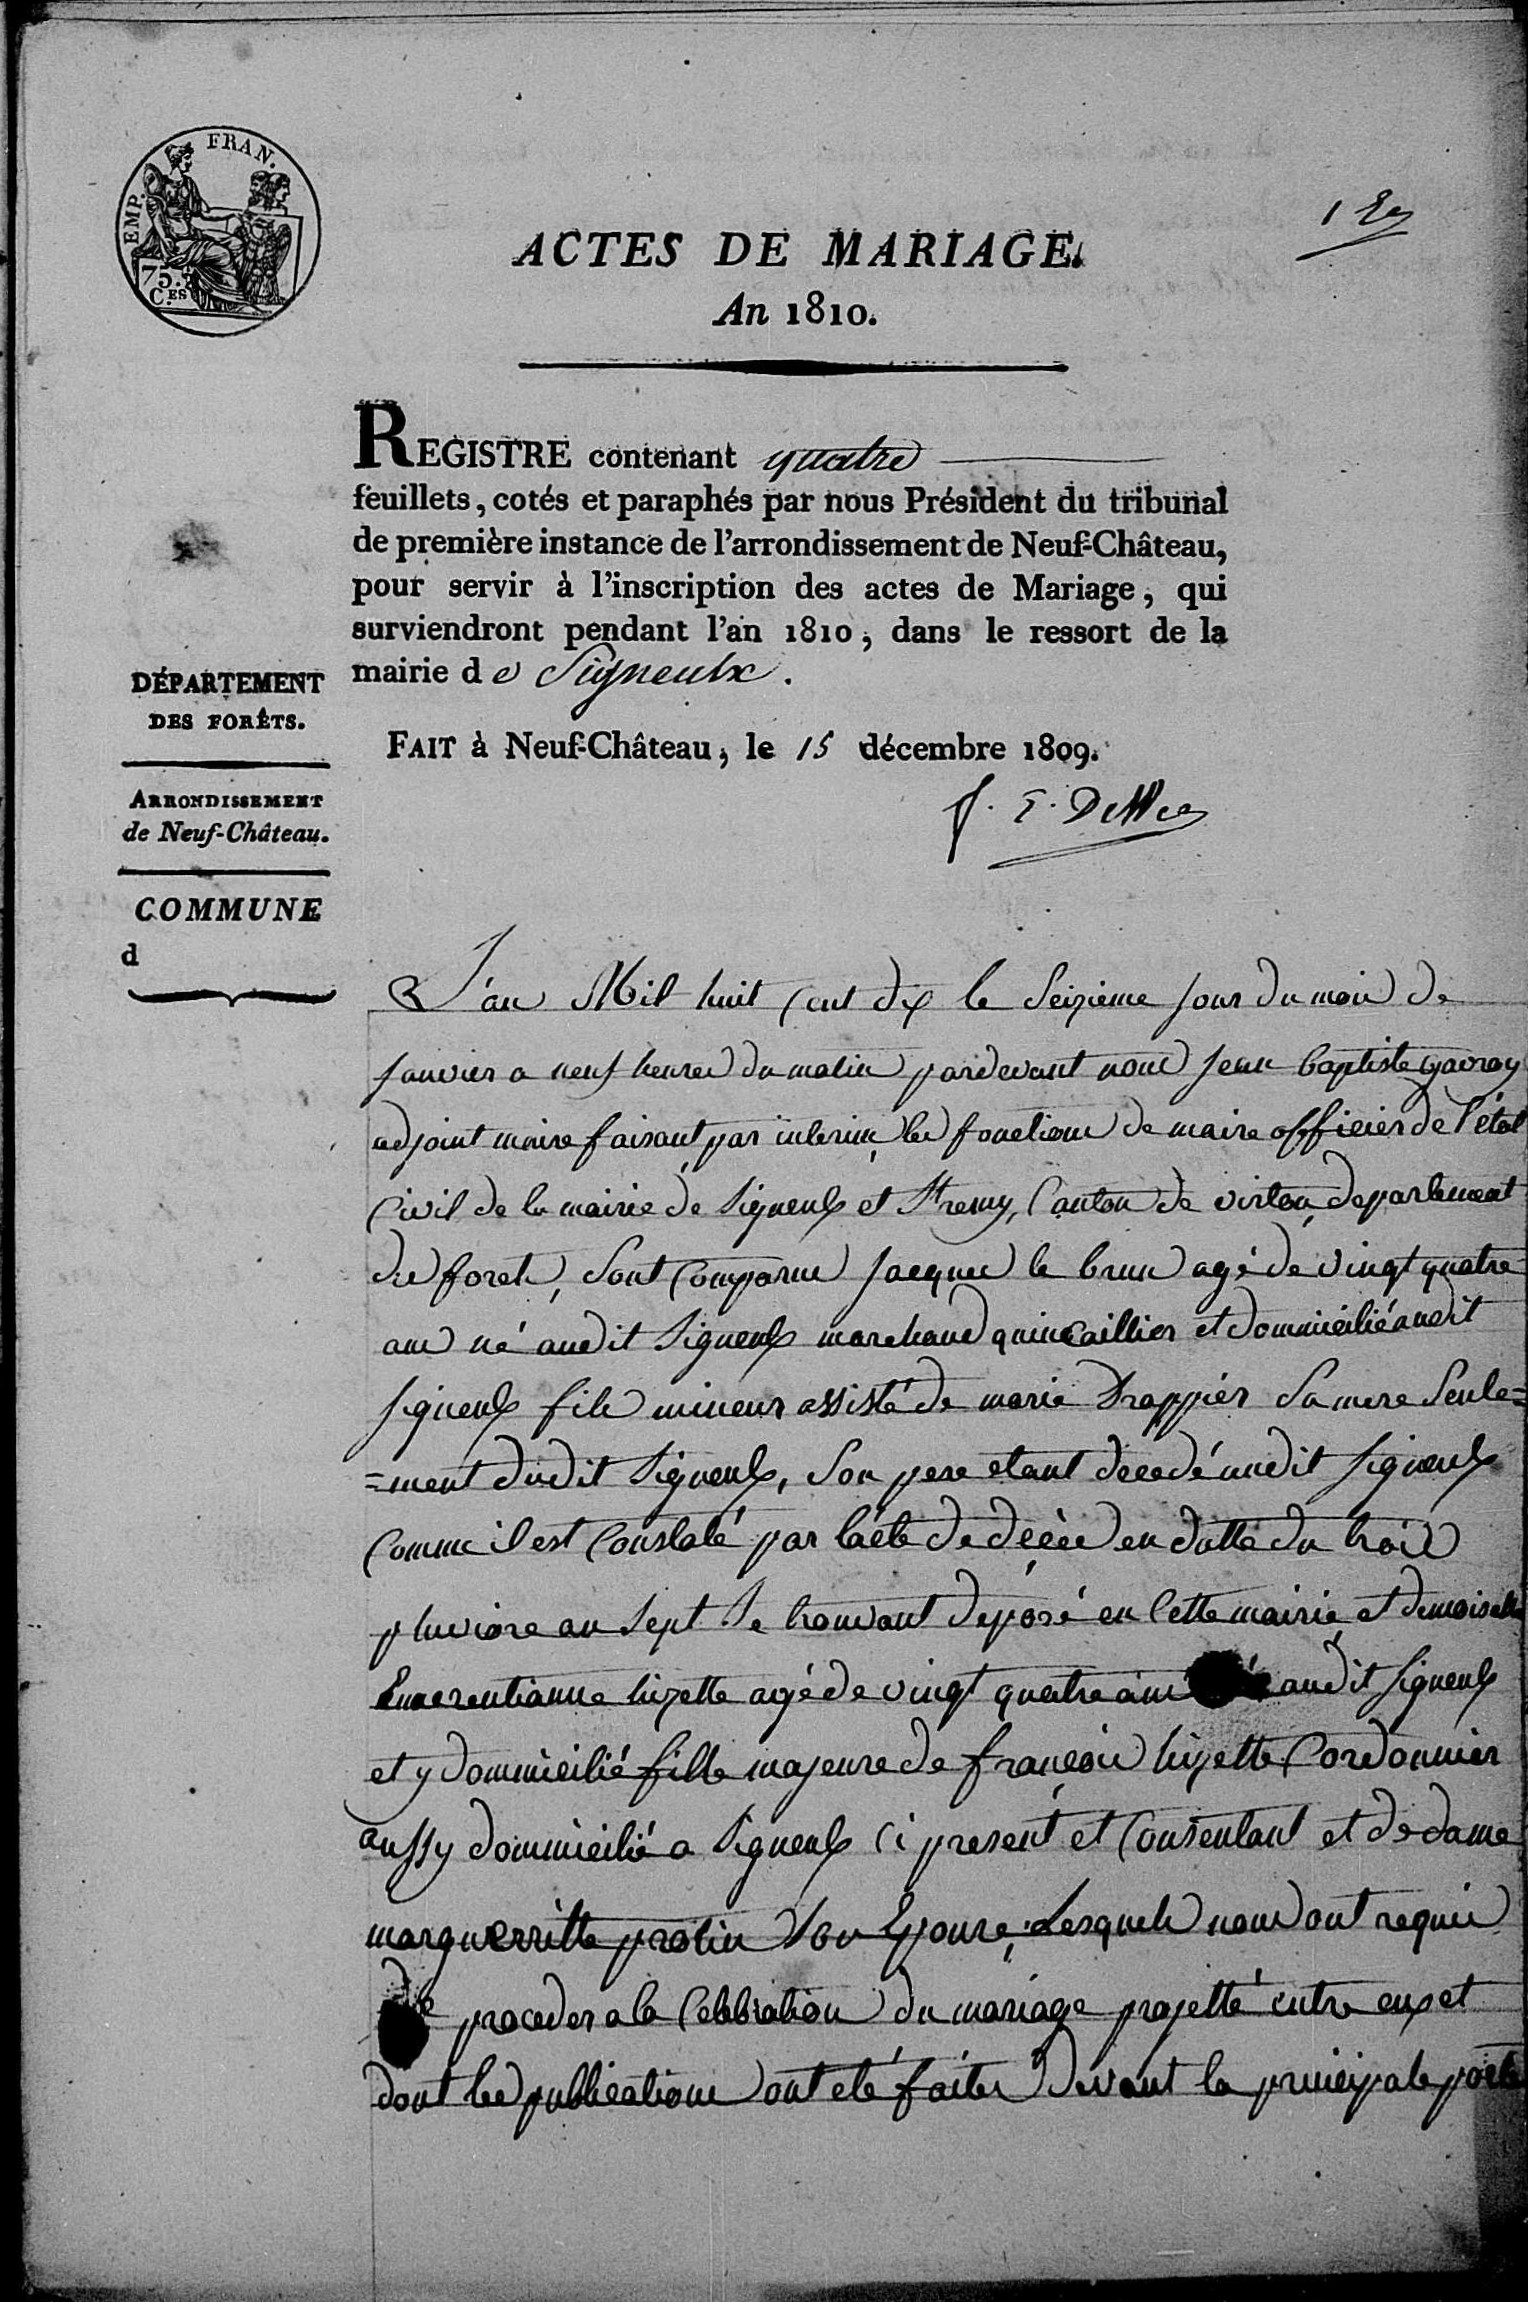 EMP. FRAN.
75.
C.ES
1 Er
ACTES DE MARIAGE.
An 1810.
REGISTRE contenant quatre
feuillets, cotés et paraphés par nous Président du tribunal
de première instance de l'arrondissement de Neuf-Château,
pour servir à l'inscription des actes de Mariage, qui
surviendront pendant l'an 1810, dans le ressort de la
mairie de Signeulx.
FAIT à Neuf-Château, le 15 décembre 1809.
DÉPARTEMENT
DES FORÊTS.
ARRONDISSEMENT
de Neuf-Château.
COMMUNE
d
L'an Mil huit Cent dix le Seizieme jour du mois de
janvier a neuf heures du matin pardevant nous jean baptiste gavroy
adjoint maire faisant par interim les fonctions de maire officier de l'état
Civil de la mairie de Signeulx et St remy, Canton de virton, departement
des forets, Sont Comparus jacques le brun agé de vingt quatre
ans né audit Signeulx marchand quincaillier et dommicilié audit
signeulx fils mineur assisté de marie Drappier Sa mere Seule=
=ment dudit Signeulx, Son pere etant decedé audit signeulx
Comme il est Constaté par l'acte de décès en datte du trois
pluviose an Sept Se trouvant deposé en Cette mairie, et demoiselle
Emerentianne lizette agé de vingt quatre ans née audit signeulx
et y dommicilié fille majeure de françois lizette Cordonnier
aussy dommicilié a Signeulx Ci present et Consentant et de dame
marguerritte protin Son Epouse, Lesquels nous ont requis
de proceder a la Celebration du mariage projetté entre eux et
dont les publications ont eté faites devant la principale porte